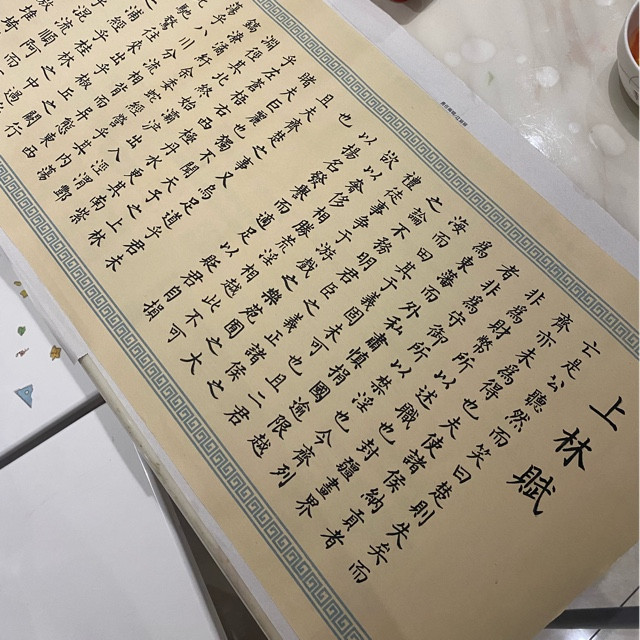 上林賦
亡是公聽然而笑曰楚則失矣而
齊亦未為得也夫使諸候納貢者
非為財幣所以述職也封疆畫界
者非為守御所以禁淫也今齊列
為東藩而外私肅慎捐國逾限越
海而田其于義固未可也且二君
之論不務明君臣之義諸候之
禮徒事爭于游戲之樂苑囿之大
欲以奢侈相勝荒淫相越此不可
以揚名發譽而適足以貶君自損
也
且夫齊楚之事又烏足道乎君未
睹夫巨麗也獨不聞天子之上林
乎左蒼梧右西極丹水更其南紫
淵徑其北終始灞滻出入涇渭酆
鎬潦潏紆委蛇經乎其內蕩
蕩乎八川分流相而異態東西
馳騖往來出乎椒丘之闕行
乎之浦經乎桂林之中過乎
乎混流順阿而